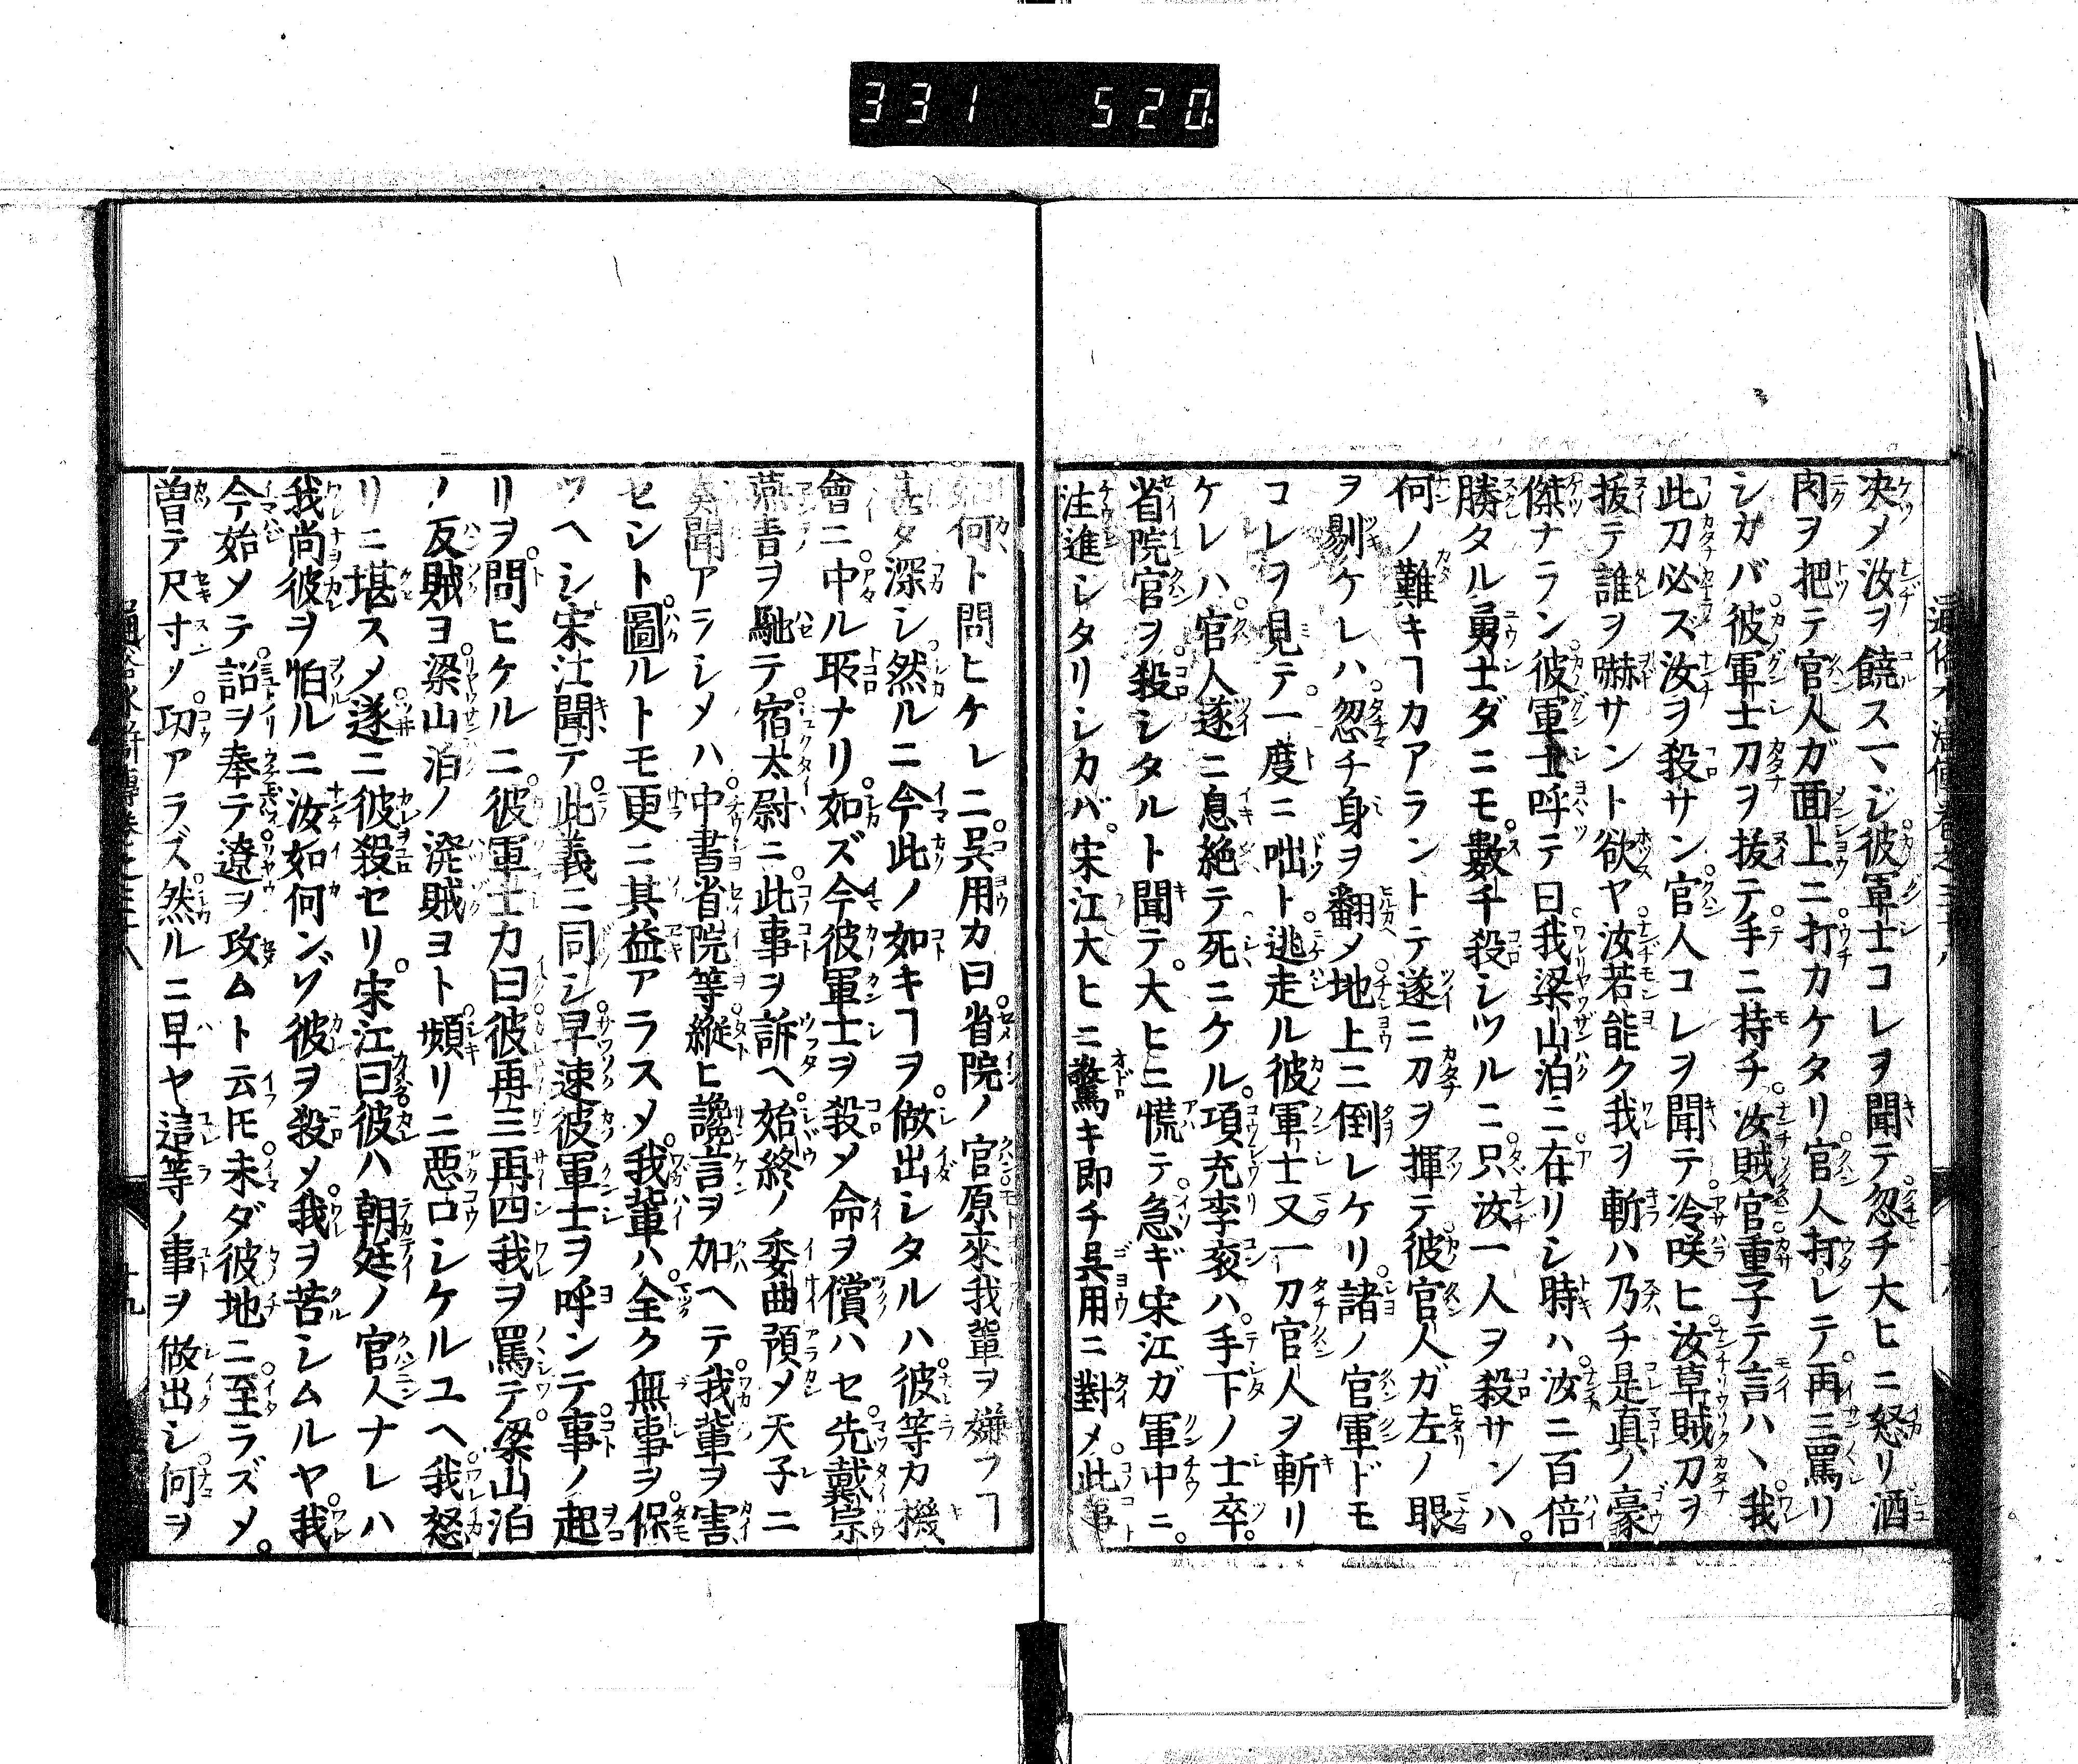 331 520
決メ汝ヲ饒スマヽジ彼軍士コレヲ聞テ忽チ大ヒニ怒リ酒
肉ヲ把テ官人ガ面上ニ打カケタリ官人打レテ再三罵リ
シカバ彼軍士刀ヲ抜テ手ニ持チ汝賊官重子テ言ハヽ我
此刀必ズ汝ヲ殺サン官人コレヲ聞テ冷咲ヒ汝草賊刀ヲ
拔テ誰ヲ嚇サント欲ヤ汝若能ク我ヲ斬ハ乃チ是真ノ豪
傑ナラン彼軍士呼テ曰我梁山泊ニ在リシ時ハ汝ニ百倍
勝タル勇士ダニモ數千殺シツルニ只汝一人ヲ殺サンハ
何ノ難キヿカアラントテ遂ニ刀ヲ揮テ彼官人ガ左ノ眼
ヲ剔ケレハ忽チ身ヲ翻メ地上ニ倒レケリ諸ノ官軍ドモ
コレヲ見テ一度ニ咄ト逃走ル彼軍士又一刀官人ヲ斬リ
ケレハ官人遂ニ息絶テ死ニケル項充李袞ハ手下ノ士卒
省院官ヲ殺シタルト聞テ大ヒニ慌テ急ギ宋江ガ軍中ニ
注進シタリシカバ宋江大ヒニ驚キ即チ呉用ニ對メ此事
如何ト問ヒケレニ呉用カ曰省院ノ官原來我輩ヲ嫌フヿ
甚タ深シ然ルニ今此ノ如キヿヲ做出シタルハ彼等カ機
會ニ中ル取ナリ如ズ今彼軍士ヲ殺メ命ヲ償ハセ先戴宗
燕青ヲ馳テ宿太尉ニ此事ヲ訴ヘ始終ノ委曲預メ天子ニ
奏聞アラシメハ中書省院等縦ヒ讒言ヲ加ヘテ我輩ヲ害
セント圖ルトモ更ニ其益アラスメ我輩ハ全ク無事ヲ保
ツヘシ宋江聞テ此義ニ同シ早速彼軍士ヲ呼ンテ事ノ起
リヲ問ヒケルニ彼軍士カ曰彼再三再四我ヲ罵テ梁山泊
ノ反賊ヨ梁山泊ノ溌賊ヨト頻リニ惡口シケルユヘ我怒
リニ堪スメ遂ニ彼殺セリ宋江曰彼ハ朝廷ノ官人ナレハ
我尚彼ヲ怕ルニ汝如何ンゾ彼ヲ殺メ我ヲ苦シムルヤ我
今始ソテ詔ヲ奉テ遼ヲ攻ムト云𪜈未ダ彼地ニ至ラズメ
曽テ尺寸ツ功アラズ然ルニ早ヤ這等ノ事ヲ做出シ何ヲ